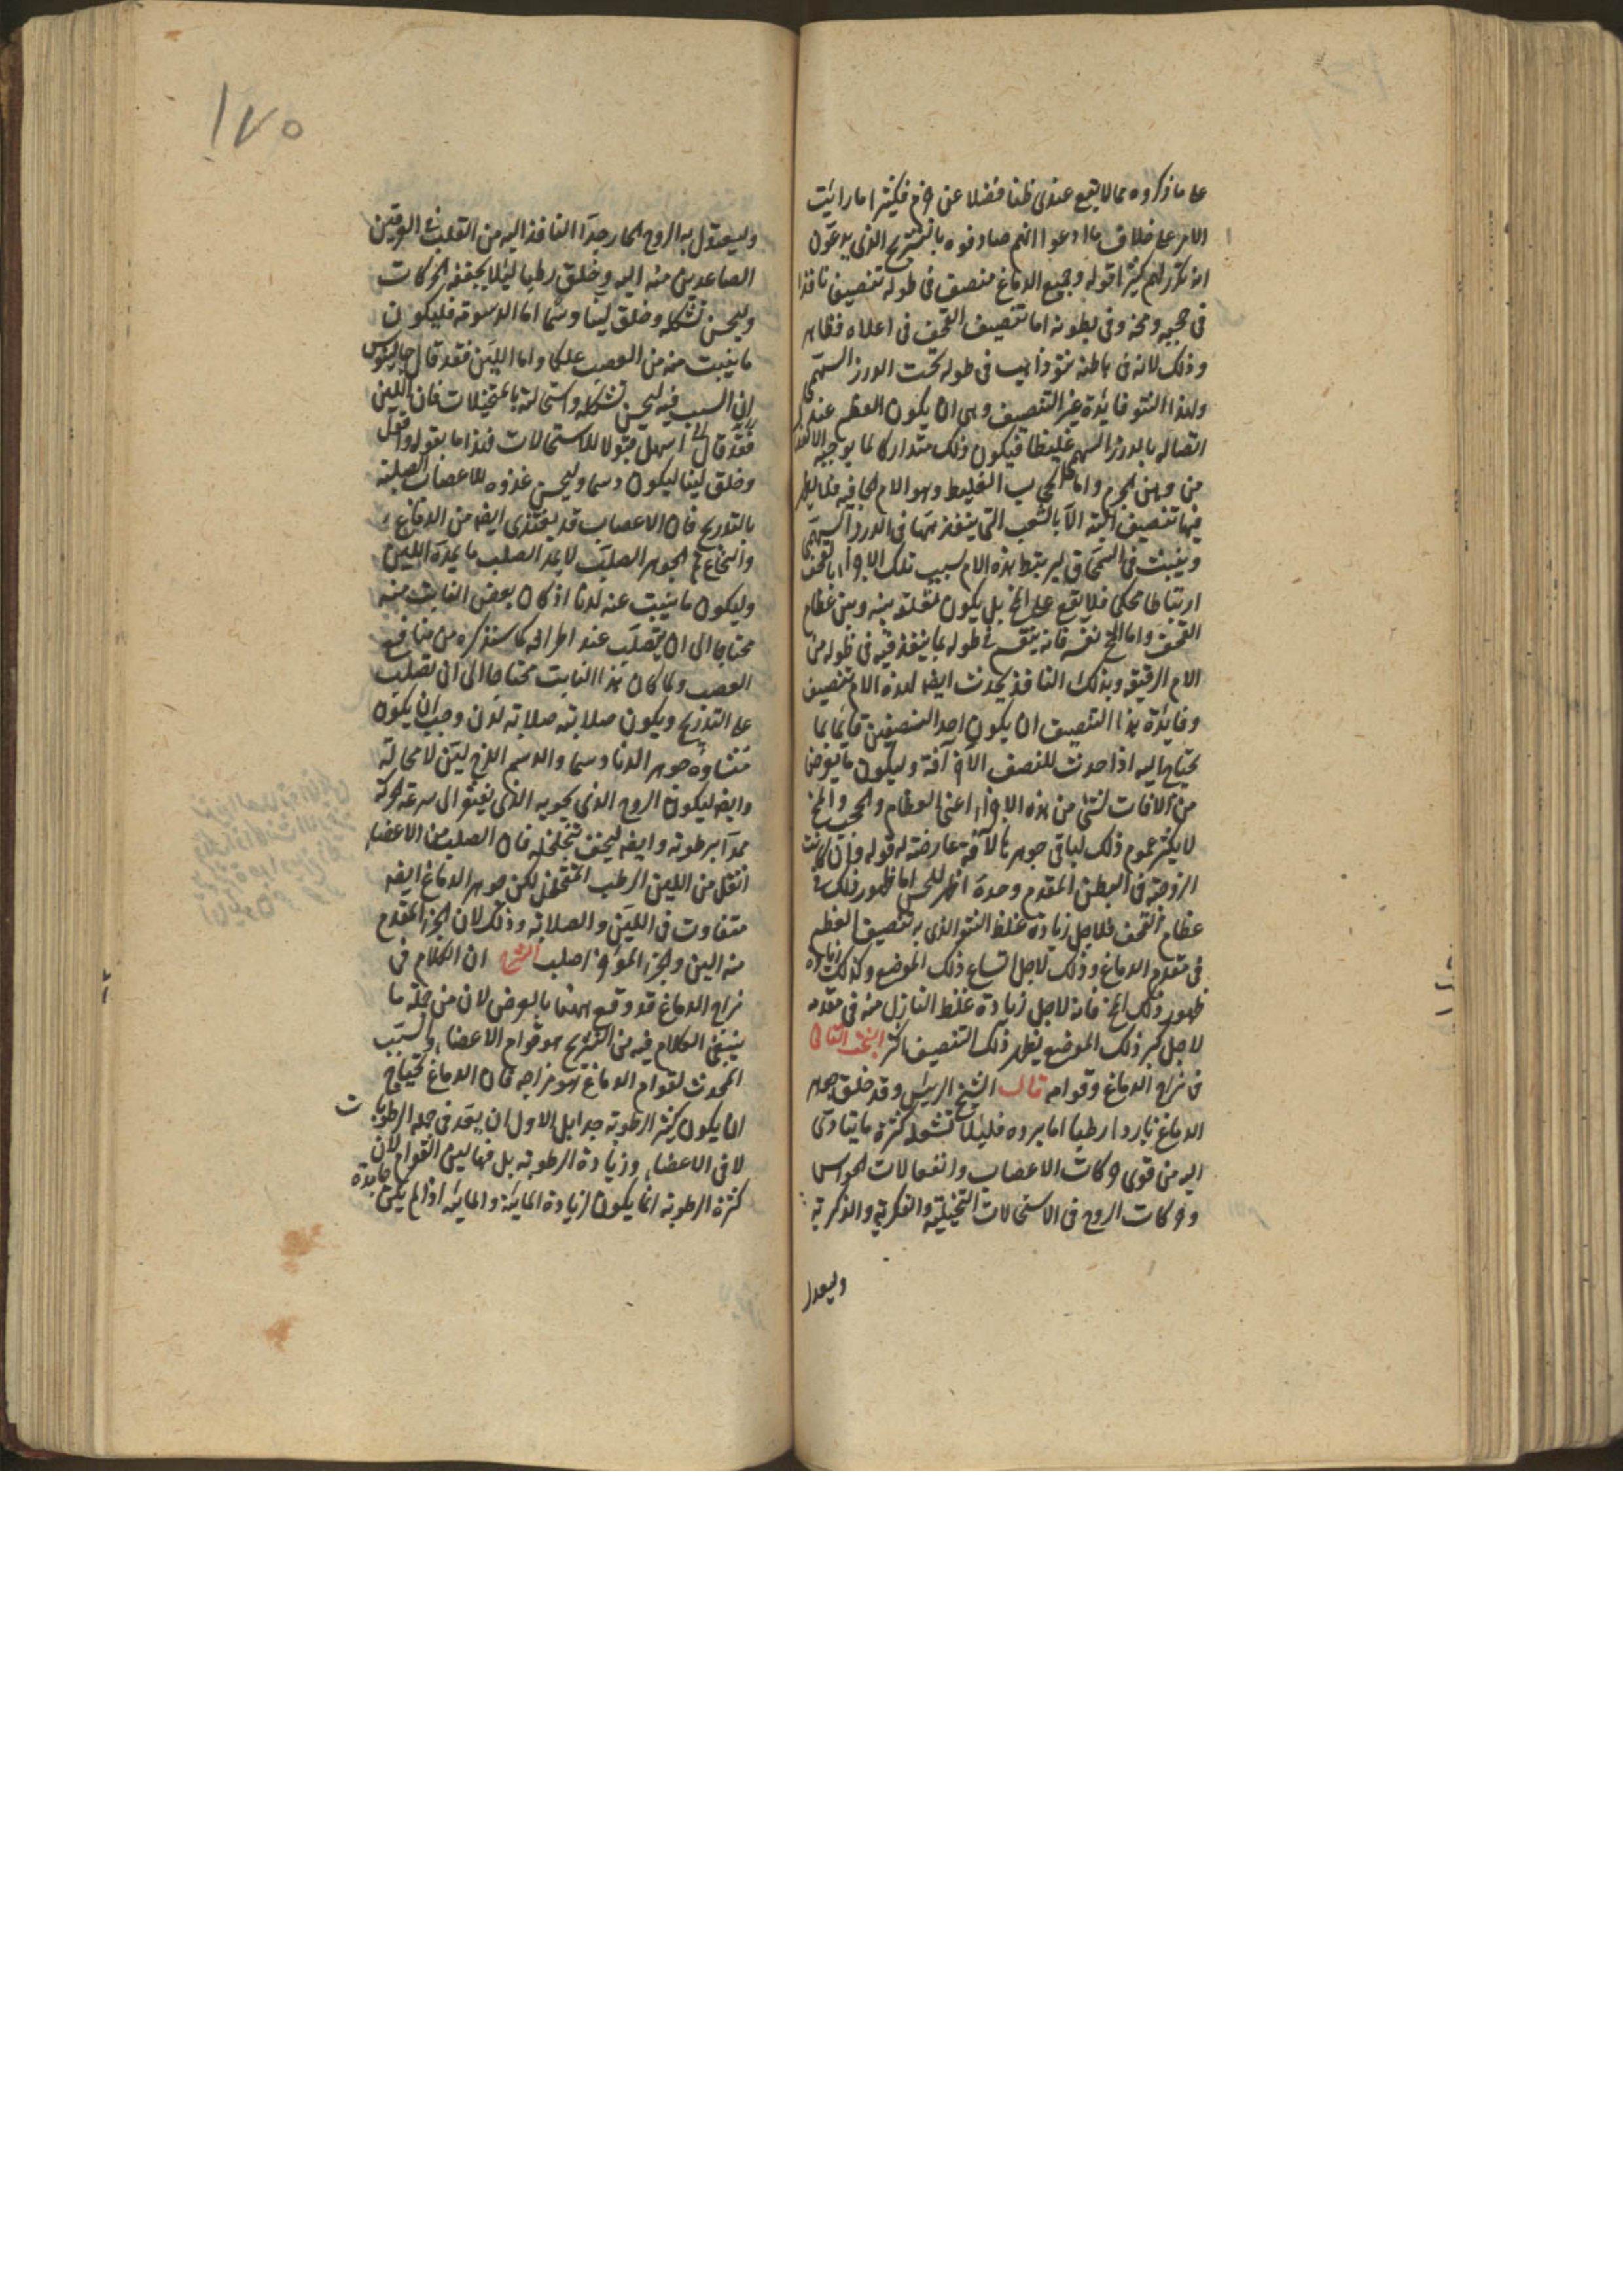 على ما ذكروه مما لا يقع عندى ظنا فضلا عن جزم فكثيرا ما رايت
الامر على خلاف ما ادعوا انهم صادفوه بالتشريح الذى يدعون
انه تكرر لهم كثيرا قوله وجميع الدماغ منصف فى طوله تنصيفا نافذا
فى حجبه ومخه وفى بطونه اما تنصيف القحف فى اعلاه فظاهر
وذلك لانه فى باطنه نتو ذاهب فى طوله تحت الدرز السهمى
ولهذا النتو فائدة غير التنصيف وهى ان يكون العظم عند
اتصاله بالدرز السهمى غليظا فيكون ذلك متداركا لما يوجبه
من وهن الجرم واما الحجاب الغليظ وهو الام الجافيه فلا يظهر
فيها تنصيف البتة الا بالشعب التى ينفذ منها فى الدرز السهمى
وينبث فى السمحاق ليرتبط بهذه الام بسبب تلك الاجزا بالقحف
ارتباطا محكما فلا يقع على المخ بل يكون معلقة بينه وبين عظام
القحف واما المخ نفسه فانه ينقسم فى طوله بما ينفذ فيه فى طوله من
الام الرقيق وبذلك النافذ يحدث ايضا لهذه الام تنصيف
وفايدة هذا التنصيف ان يكون احد المنصفين قائما بما
يحتاج اليه اذا حدث للنصف الاخر آفة وليكون ما يعرض
من الآفات لشئ من هذه الاجزاء اعنى العظام والحجب والمخ
لا يكثر عموم ذلك لباقى جوهره بالآفة عارضة له قوله وان كانت
الزوجية فى البطن المقدم وحده اظهر للحس اما ظهور ذلك فى
عظام القحف فلاجل زيادة غلظ النتو الذى به تنصيف العظم
فى مقدم الدماغ وذلك لاجل اتساع ذلك الموضع وكذلك زيادة
ظهور ذلك المخ فانه لاجل زيادة غلظ النازل منه فى مقدمه
لاجل كبر ذلك الموضع يظهر ذلك التنصيف اكثر البحث الثانى
فى مزاج الدماغ وقوامه قال الشيخ الرئيس وقد خلق جوهر
الدماغ باردا رطبا اما برده فليلا تشعله كثرة ما يتادى
اليه من قوى حركات الاعصاب وانفعالات الحواس
وحركات الروح فى الاستحالات التخيلية والفكرية والذكرية
وليعدل
١٧٥
وليعتدل به الروح الحار جدا النافذ اليه من القلب فى العرقين
الصاعدين منه اليه وخلق رطبا ليلا يجففه الحركات
وليحسن تشكله وخلق لينا دسما اما الدسومة فليكون
ما ينبت منه من العصب علكا واما اللين فقد قال جالينوس
ان السبب فيه ليحسن تشكله واستحالته بالمتخيلات فان اللين
اسهل قبولا للاستحالات فهذا ما يقوله واقول
وخلق لينا ليكون دسما وليحسن غذوه للاعصاب الصلبة
بالتدريج فان الاعصاب قد يغتذى ايضا من الدماغ
والنخاع والجوهر الصلب لا يمد الصلب ما يمده اللين
وليكون ما ينبت عنه لدنا اذ كان بعض النابت منه
محتاجا الى ان يتصلب عند اطرافه كما سنذكره من منافع
العصب ولما كان هذا النابت محتاجا الى ان تصلب
على التدريج ويكون صلابته صلابة لدن وجب ان يكون
منشاؤه جوهر الدنا دسما والدسم اللزج لين لا محالة
وايضا ليكون الروح الذى يحويه الذى يفتقر الى سرعة الحركة
ممدا برطوبته وايضا ليخف بتخلخله فان الصلب من الاعضاء
اثقل من اللين الرطب المتخلخل لكن جوهر الدماغ ايضا
متفاوت فى اللين والصلابة وذلك لان الجزء المقدم
منه الين والجزء المؤخر اصلب الشرح ان الكلام فى
مزاج الدماغ قد وقع ههنا بالعرض لان من جملة ما
ينبغى الكلام فيه من التشريح هو قوام الاعضاء والسبب
المحدث لقوام الدماغ هو مزاجه فان الدماغ يحتاج
ان يكون كثير الرطوبة جدا بل الاولى ان يعد فى جملة الرطوبات
لا فى الاعضاء وزيادة الرطوبة بل فيها لين القوام لان
كثرة الرطوبة انما يكون لزيادة المائية والمائية اذا لم يكن جامدة